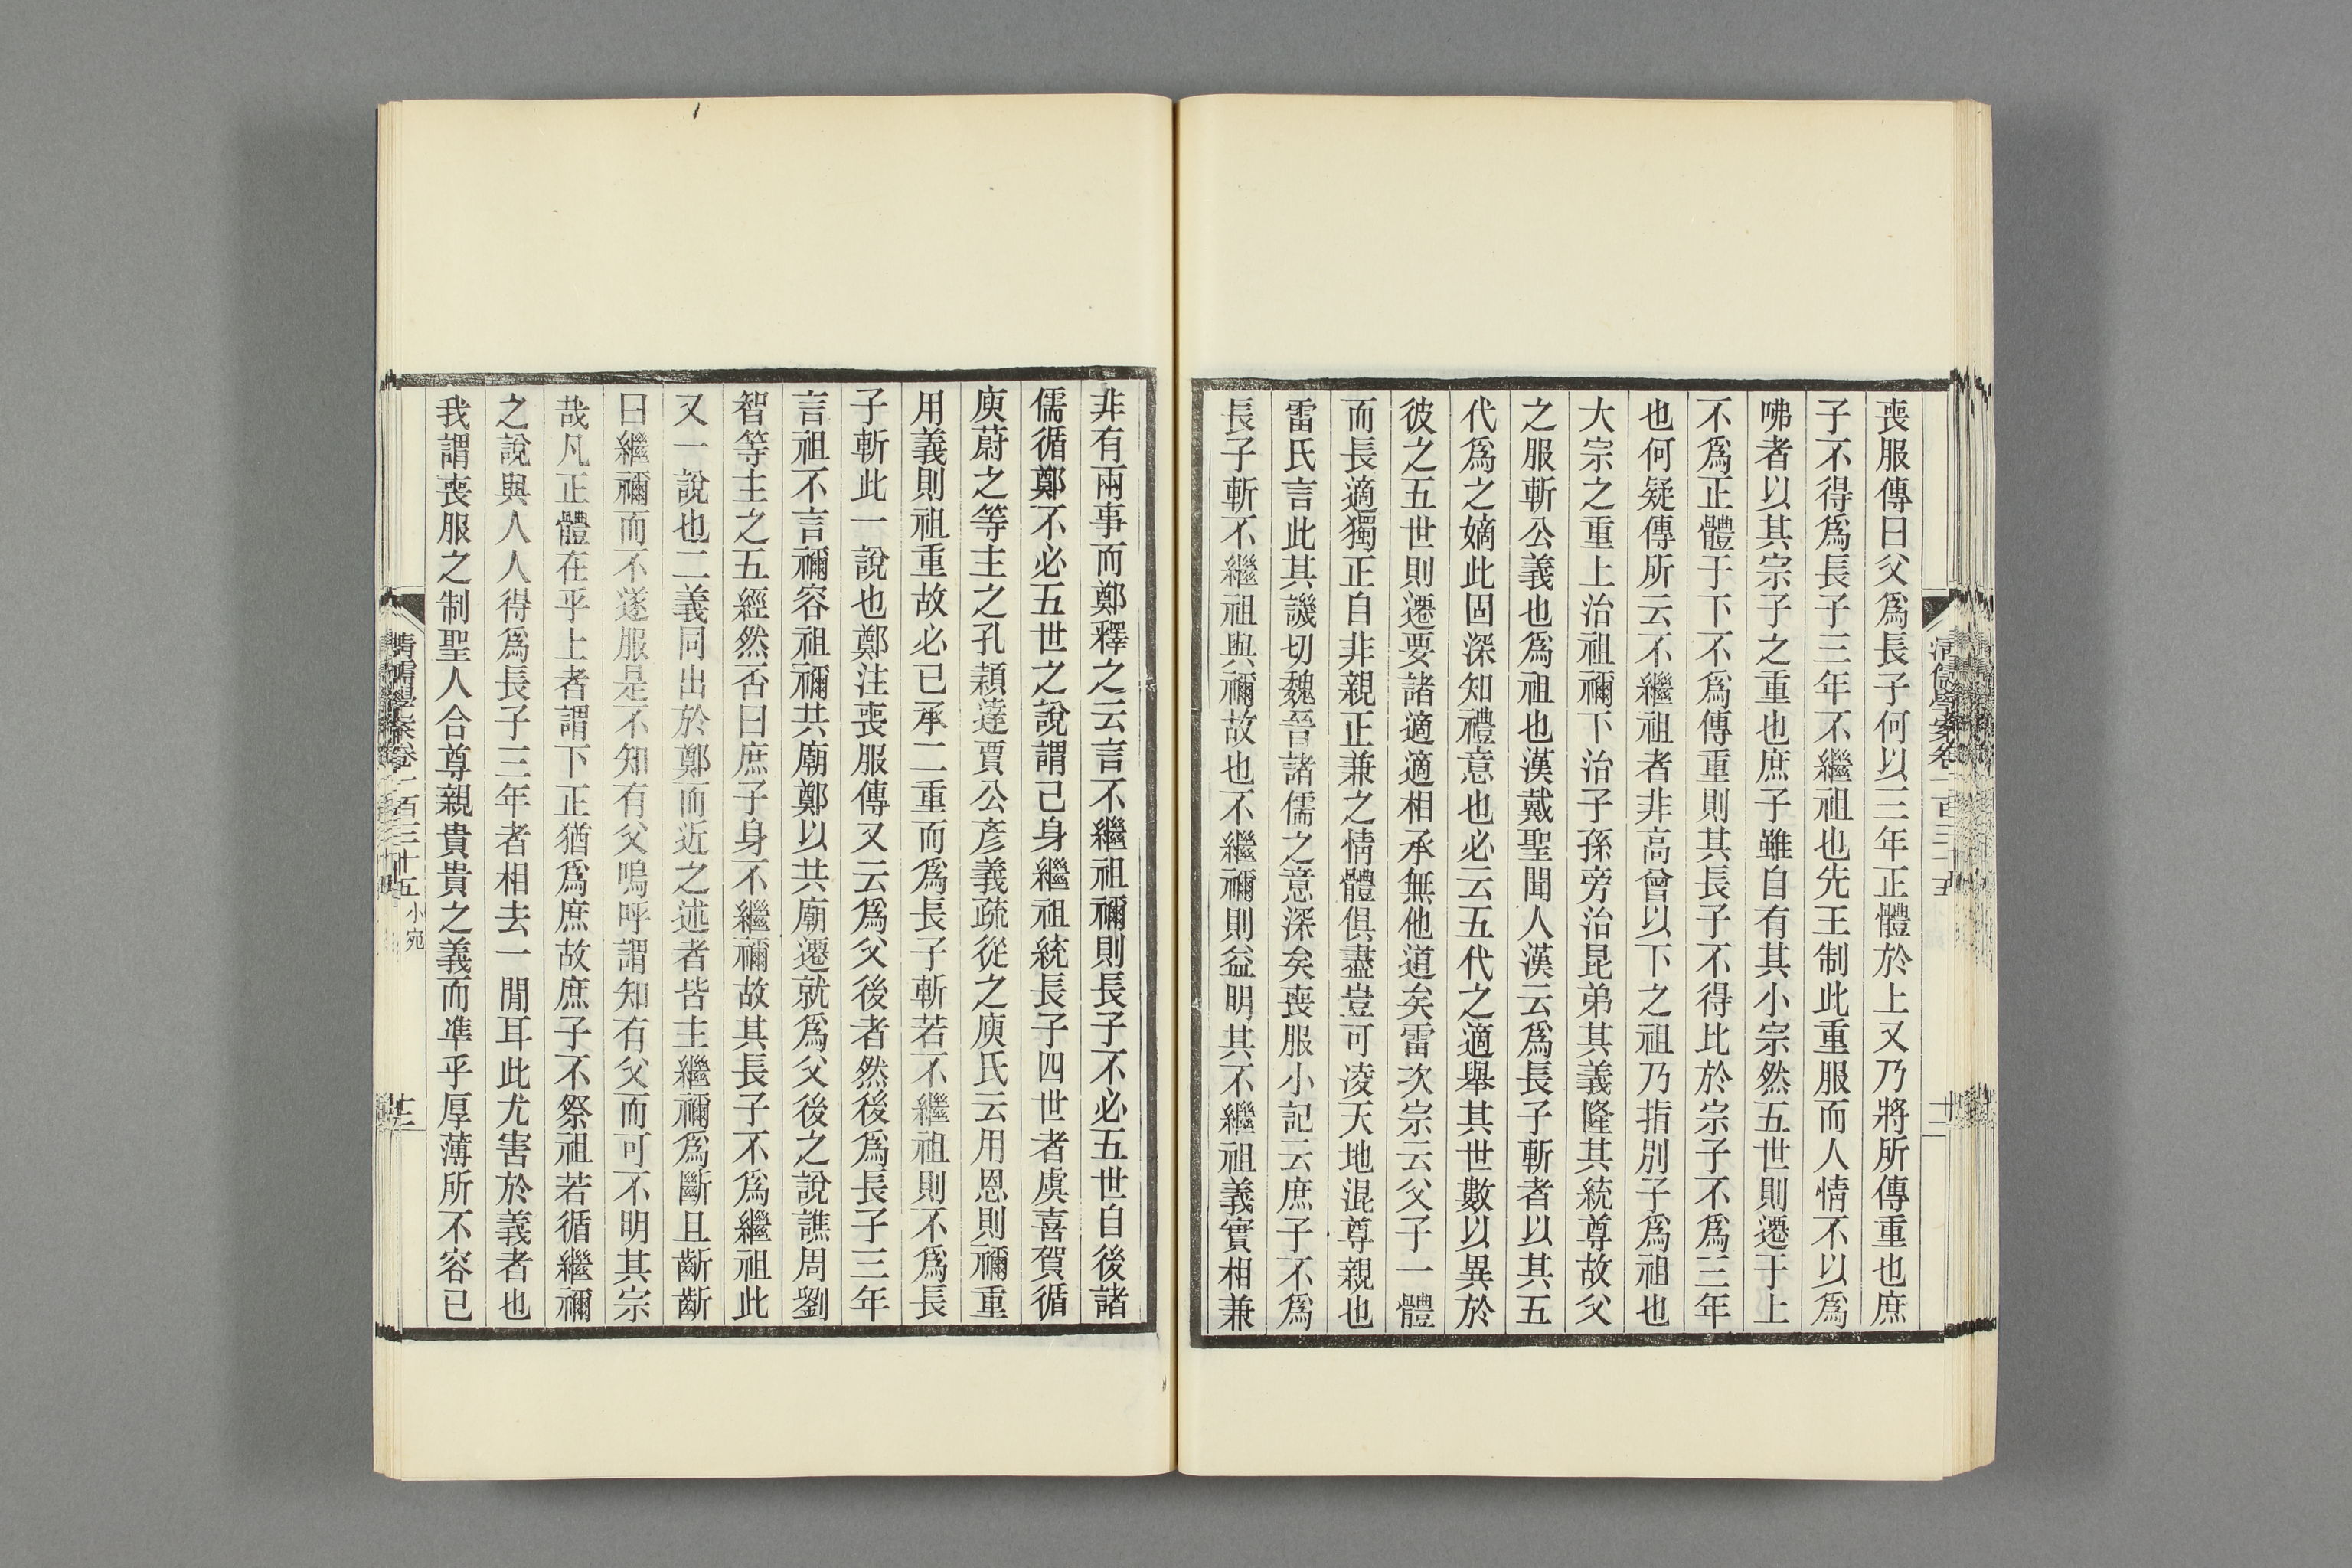 喪服傳曰父爲長子何以三年正體於上又乃將所傳重也庶
子不得爲長子三年不繼祖也先王制此重服而人情不以爲
咈者以其宗子之重也庶子雖自有其小宗然五世則遷于上
不爲正體于下不爲傳重則其長子不得比於宗子不爲三年
也何疑傳所云不繼祖者非高曾以下之祖乃指別子爲祖也
大宗之重上治祖禰下治子孫旁治昆弟其義隆其統尊故父
之服斬公義也爲祖也漢戴聖聞人漢云爲長子斬者以其五
代爲之嫡此固深知禮意也必云五代之適舉其世數以異於
彼之五世則遷要諸適適相承無他道矣雷次宗云父子一體
而長適獨正自非親正兼之情體俱盡豈可凌天地混尊親也
雷氏言此其譏切魏晉諸儒之意深矣喪服小記云庶子不爲
長子斬不繼祖與禰故也不繼禰則益明其不繼祖義實相兼
非有兩事而鄭釋之云言不繼祖禰則長子不必五世自後諸
儒循鄭不必五世之說謂己身繼祖統長子四世者虞喜賀循
庾蔚之等主之孔穎達賈公彥義疏從之庾氏云用恩則禰重
用義則祖重故必已承二重而爲長子斬若不繼祖則不爲長
子斬此一說也鄭注喪服傳又云爲父後者然後爲長子三年
言祖不言禰容祖禰共廟鄭以共廟遷就爲父後之說譙周劉
智等主之五經然否曰庶子身不繼禰故其長子不爲繼祖此
又一說也二義同出於鄭而近之述者皆主繼禰爲斷且齗齗
曰繼禰而不遂服是不知有父嗚呼謂知有父而可不明其宗
哉凡正體在乎上者謂下正猶爲庶故庶子不祭祖若循繼禰
之說與人人得爲長子三年者相去一閒耳此尤害於義者也
我謂喪服之制聖人合尊親貴貴之義而準乎厚薄所不容已